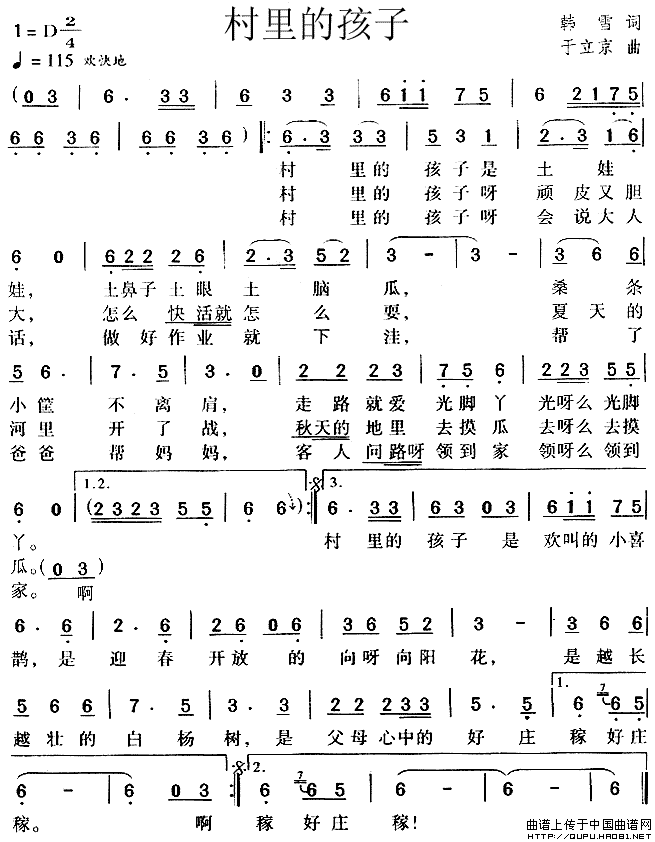 村里的孩子
1=D 2/4
韩 雪 词
♩=115 欢快地
于立京 曲
(0 3 | 6. 3 3 | 6 3 3 | 6 1 1 7 5 | 6 2 1 7 5 |
6 6 3 6 | 6 6 3 6) ‖: 6. 3 3 3 | 5 3 1 | 2. 3 1 6 |
村 里的 孩 子是 土 娃
村 里的 孩 子呀 顽 皮又胆
村 里的 孩 子呀 会 说大人
6 0 | 6 2 2 2 6 | 2. 3 5 2 | 3 - | 3 - | 3 6 6 |
娃, 土鼻子土眼土 脑 瓜, 桑 条
大, 怎么 快活就怎 么 耍, 夏 天的
话, 做好作业就 下 洼, 帮 了
5 6. | 7. 5 | 3. 0 | 2 2 2 3 | 7 5 6 | 2 2 3 5 5 |
小筐 不离肩, 走路就爱 光脚丫 光呀么光脚
河里 开了战, 秋天的地里 去摸瓜 去呀么去摸
爸爸 帮妈妈, 客人问路呀 领到家 领呀么领到
1.2.
3.
6 0 | (2 3 2 3 5 5 | 6 6) :‖ 6. 3 3 | 6 3 0 3 | 6 1 1 7 5 |
丫。 村 里的 孩子 是 欢叫的小喜
瓜。(0 3)
家。 啊
6. 6 | 2. 6 | 2 6 0 6 | 3 6 5 2 | 3 - | 3 6 6 |
鹊,是 迎 春 开放 的 向呀向阳 花, 是越长
5 6 6 | 7. 5 | 3. 3 | 2 2 2 3 3 | 5. 5 | 6 6 5 |
1.
越壮的 白杨树,是 父母心中的 好 庄 稼好庄
2.
6 - | 6 0 3 :‖ 6 6 5 | 6 - | 6 - | 6 0 ‖
稼。 啊 稼 好庄 稼!
曲谱上传于中国曲谱网
WWW.QUPU.HAO81.NET